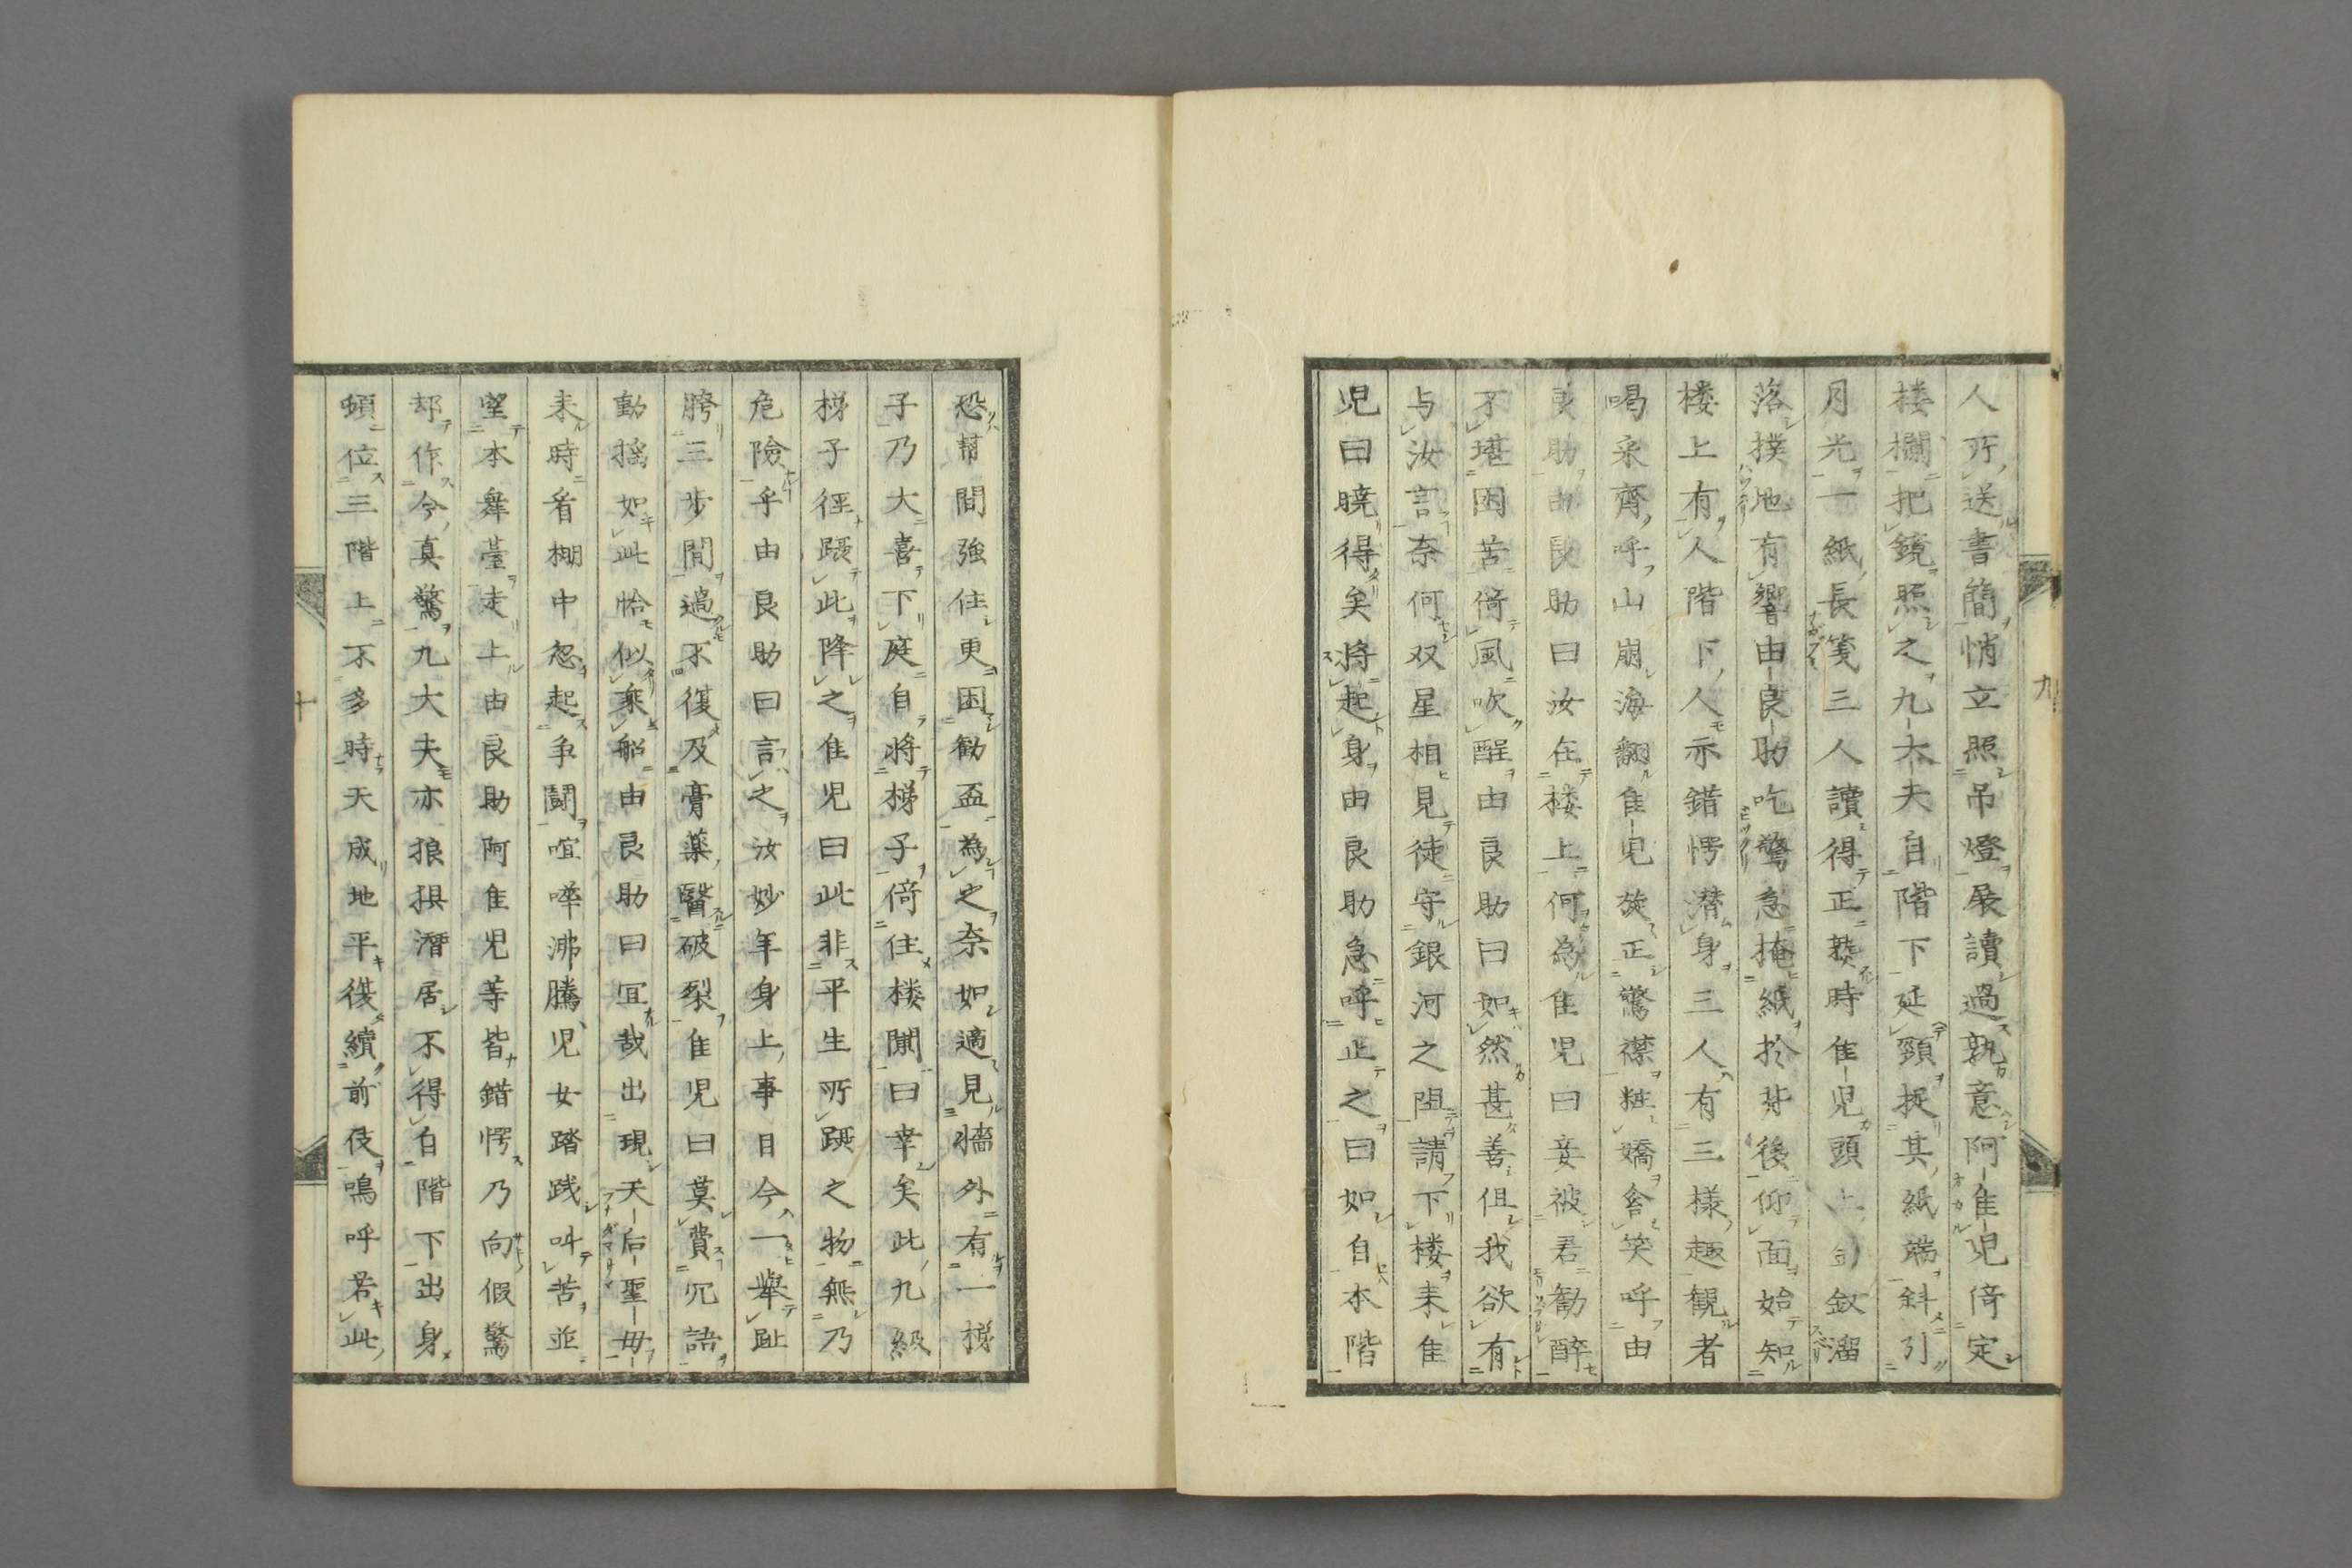 人所送書簡悄立照吊燈展讀過孰意阿隹児倚定
楼欄把鏡照之九太夫自階下延頸捉其紙端斜引
月光一紙長箋三人讀得正濃時隹児頭上釵溜
落撲地有響由良助吃驚急掩紙於背後仰面始知
楼上有人階下人亦錯愕潜身三人有三様趣観者
喝采齊呼山崩海翻隹児旋正驚襟粧嬌含笑呼由
良助由良助曰汝在楼上何為隹児曰妾被君勧酔
不堪困苦倚風吹醒由良助曰如然甚善但我欲有
与汝言奈何双星相見徒守銀河之阻請下楼来隹
児曰暁得矣将起身由良助急呼止之曰如自本階
九
恐幇間強住更困勧盃為之奈如適見墻外有一梯
子乃大喜下庭自将梯子倚住楼閒曰幸矣此九級
梯子径踬此降之隹児曰此非平生所踬之物無乃
危險乎由良助曰言之汝妙年身上事目今一舉趾
胯三歩間過不復及膏薬醫破裂隹児曰莫費冗語
動揺如此恰似乗船由良助曰宜哉出現天后聖毋
来時看棚中忽起争鬪喧嘩沸騰児女踏践叫苦並
望本舞臺走上由良助阿隹児等皆錯愕乃向假驚
却作今真驚九大夫亦狼狽潜居不得自階下出身
頓位三階上不多時天成地平復續前伎嗚呼若此
十